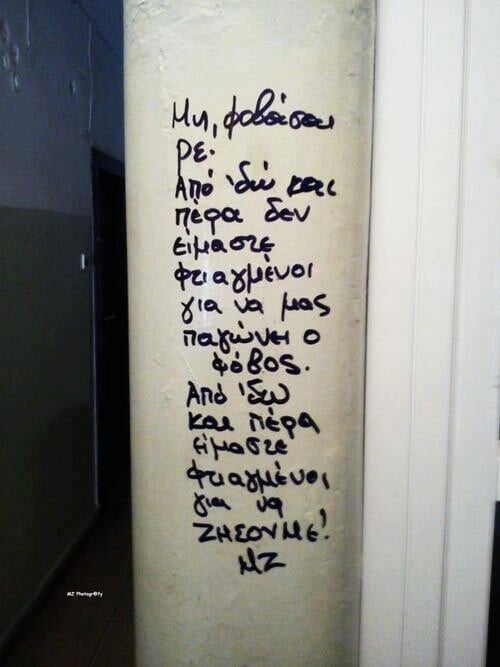 Μη, φοβάσαι
ρε.
Από 'δω και
πέρα δεν
είμαστε
φτιαγμένοι
για να μας
παγώνει ο
φόβος.
Από 'δω
και πέρα
είμαστε
φτιαγμένοι
για να
ΖΗΣΟΥΜΕ!
MZ
MZ Photogr@fy